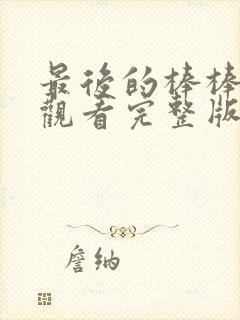 最後的棒棒
觀看完整版
詹納